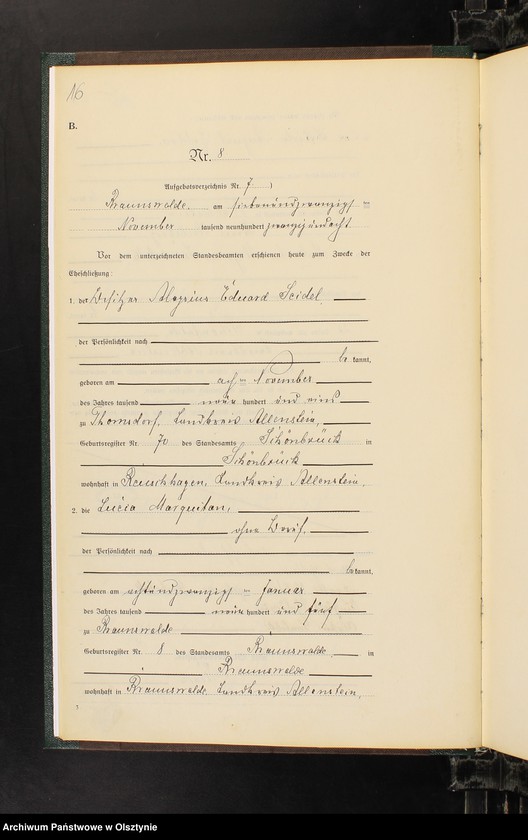 16
B.
Nr. 8
Aufgebotsverzeichnis Nr. 7
Braunswalde, am siebenundzwanzigsten
November tausend neunhundert zwanzig und acht
Vor dem unterzeichneten Standesbeamten erschienen heute zum Zwecke der
Eheschließung:
1. der Besitzer Aloysius Eduard Seidel
der Persönlichkeit nach
be kannt,
geboren am achten November
des Jahres tausend neun hundert und eins
zu Thomsdorf, Landkreis Allenstein,
Geburtsregister Nr. 70 des Standesamts Schönbrück in
Schönbrück
wohnhaft in Reuschhagen, Landkreis Allenstein.
2. die Lucia Marquitan,
ohne Beruf,
der Persönlichkeit nach
be kannt,
geboren am achtundzwanzigsten Januar
des Jahres tausend neun hundert und fünf
zu Braunswalde
Geburtsregister Nr. 8 des Standesamts Braunswalde in
Braunswalde
wohnhaft in Braunswalde, Landkreis Allenstein.
Archiwum Państwowe w Olsztynie